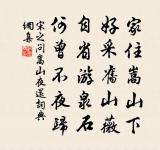 家住嵩山下
好采舊山薇
自省游泉石
何曾不夜歸
宋之問嵩山夜還詞典
網集